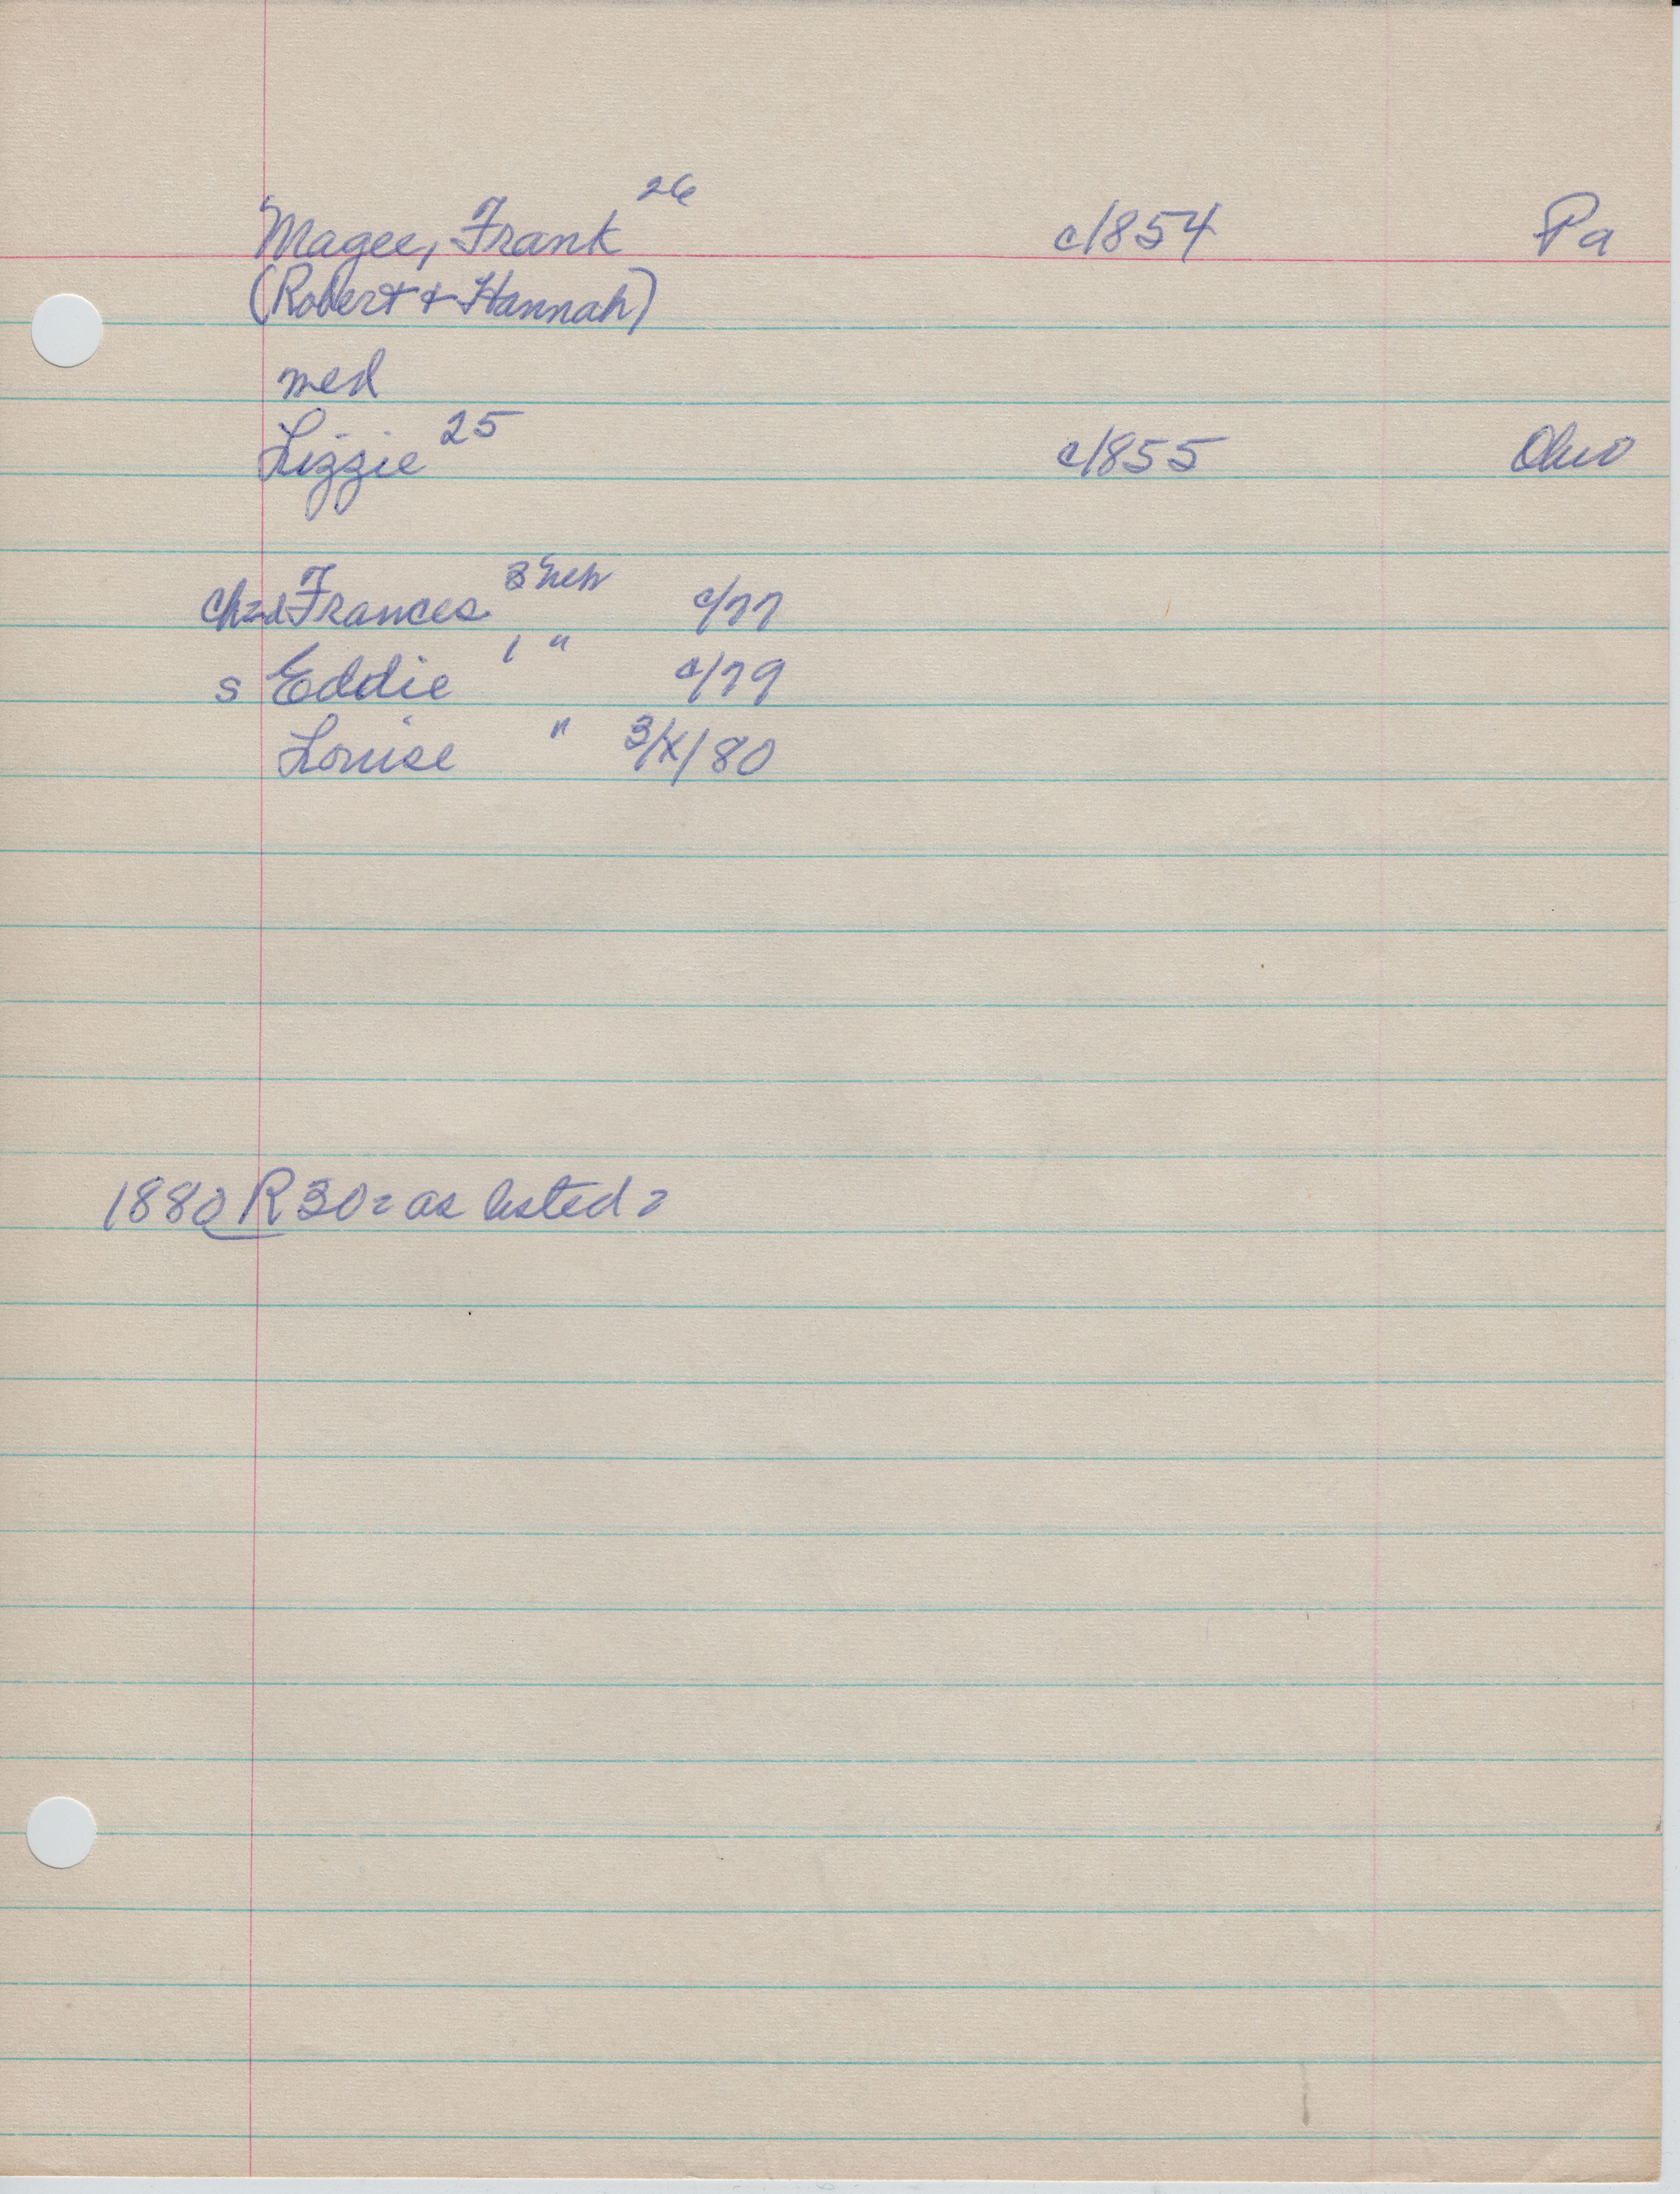 Magee, Frank 26 c1854 Pa
(Robert + Hannah)
med
Lizzie 25 c1855 Ohio
ch=d Frances 3 Neb c/77
s Eddie 1 " c/79
Louise " 3/x/80
1880 R30= as listed=